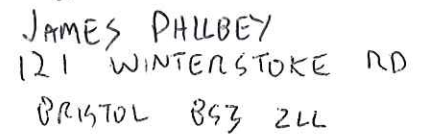 JAMES PHILBEY
121 WINTERSTOKE RD
BRISTOL BS3 2LL